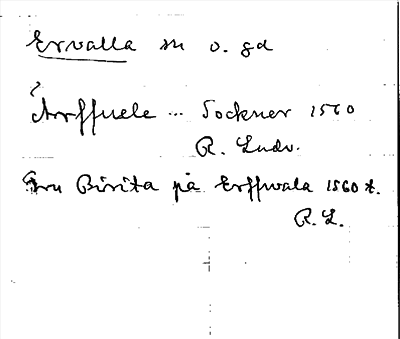 Ervalla sn o. gd
Årffuele ... Sockner 1560
R. Ludv.
Fru Birita på Erffwala 1560 t.
R. L.